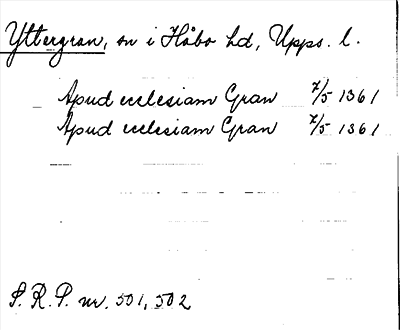 Yttergran, sn i Håbo hd, Upps. l.
Apud ecclesiam Gran 7/5 1361
Apud ecclesiam Gran 7/5 1361
S. R. P. nr. 501, 502